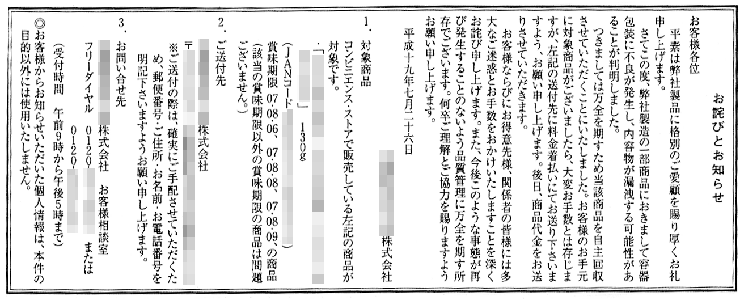 お詫びとお知らせ
お客様各位
平素は弊社製品に格別のご愛顧を賜り厚くお礼
申し上げます。
さてこの度、弊社製造の一部商品におきまして容器
包装に不良が発生し、内容物が漏洩する可能性があ
ることが判明しました。
つきましては万全を期すため当該商品を自主回収
させていただくことにいたしました。お客様のお手元
に対象商品がございましたら、大変お手数とは存じま
すが、左記の送付先に料金着払いにてお送り下さいま
すよう、お願い申し上げます。後日、商品代金をお送
りさせていただきます。
お客様ならびにお得意先様、関係者の皆様には多
大なご迷惑とお手数をおかけいたしますことを深く
お詫び申し上げます。また、今後このような事態が再
び発生することのないよう品質管理に万全を期す所
存でございます。何卒ご理解とご協力を賜りますよう
お願い申し上げます。
平成十九年七月二十六日
株式会社
1. 対象商品
コンビニエンス・ストアで販売している左記の商品が
対象です。
「 」 130g
(JANコード )
賞味期限 07.08.06、07.08.08、07.08.09、の商品
(該当の賞味期限以外の賞味期限の商品は問題
ございません。)
2. ご送付先
〒
株式会社
※ご送付の際は、確実にご手配させていただくた
め、郵便番号・ご住所・お名前・お電話番号を
明記下さいますようお願い申し上げます。
3. お問い合せ先
株式会社 お客様相談室
フリーダイヤル 0120 または
0120
(受付時間 午前9時から午後5時まで)
◎お客様からお知らせいただいた個人情報は、本件の
目的以外には使用いたしません。